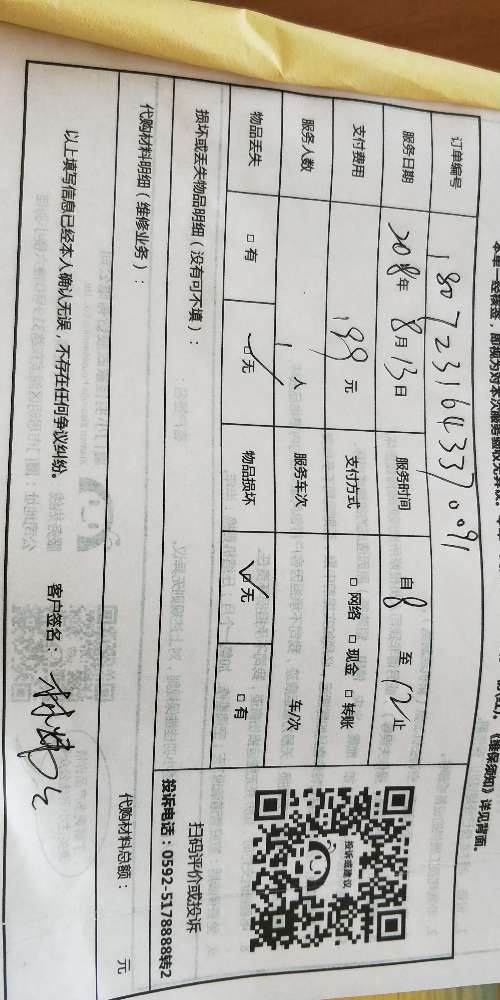 本单一经核签，即视为对本次服务验收无异议。
《维保须知》详见背面。
订单编号 180723164337091
服务日期 2018年8月13日 服务时间 自8至12止
支付费用 199元 支付方式 □网络 □现金 □转账
服务人数 1人 服务车次 车/次
物品丢失 □有 ☑无 物品损坏 ☑无 □有
损坏或丢失物品明细（没有可不填）：
扫码评价或投诉
投诉电话：0592-5178888转2
投诉或建议
代购材料明细（维修业务）：
代购材料总额： 元
以上填写信息已经本人确认无误，不存在任何争议纠纷。 客户签名：